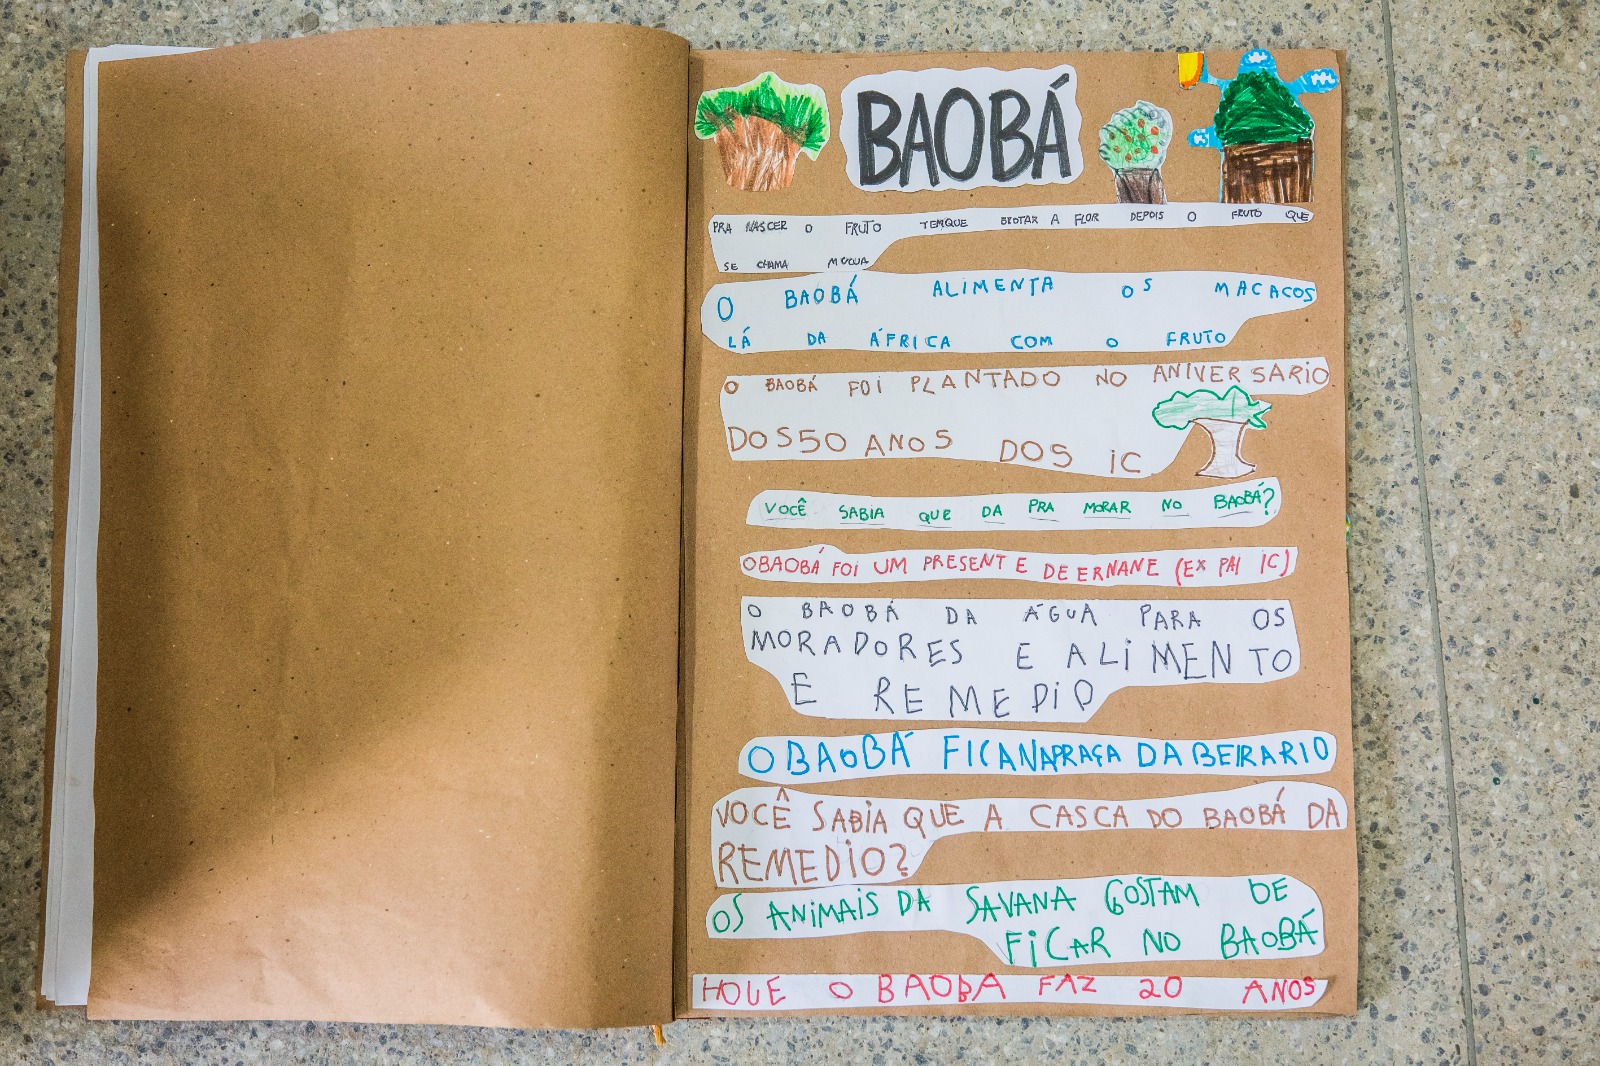 BAOBÁ
PRA NASCER O FRUTO TEMQUE BROTAR A FLOR DEPOIS O FRUTO QUE
SE CHAMA MUCUA
O BAOBÁ ALIMENTA OS MACACOS
LÁ DA ÁFRICA COM O FRUTO
O BAOBÁ FOI PLANTADO NO ANIVERSARIO
DOS50 ANOS DOS IC
VOCÊ SABIA QUE DA PRA MORAR NO BAOBÁ?
OBAOBÁ FOI UM PRESENTE DE ERNANE (EX PAI IC)
O BAOBÁ DA ÁGUA PARA OS
MORADORES E ALIMENTO
E REMEDIO
O BAOBÁ FICANAPRAÇA DA BEIRARIO
VOCÊ SABIA QUE A CASCA DO BAOBÁ DA
REMEDIO?
OS ANIMAIS DA SAVANA GOSTAM DE
FICAR NO BAOBÁ
HOUE O BAOBA FAZ 20 ANOS